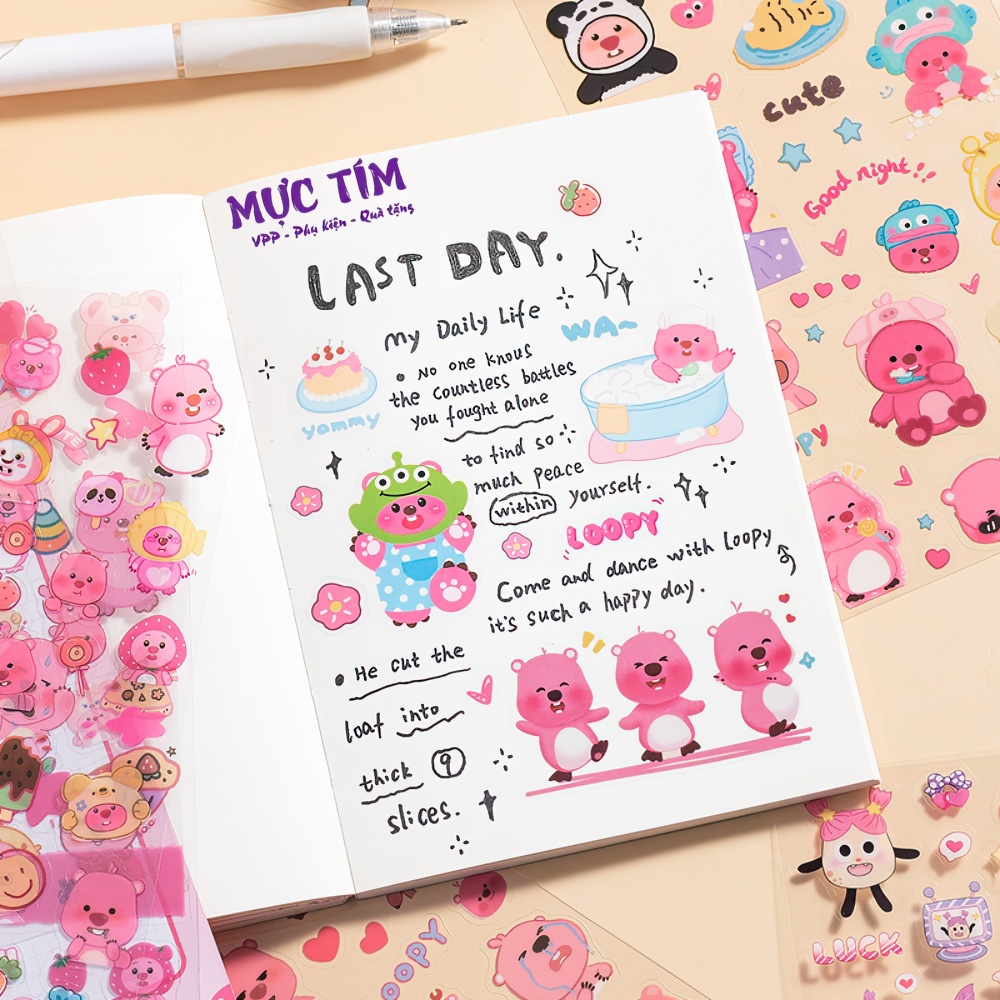 cute
Good night!!
MỰC TÍM
VPP - Phụ kiện - Quà tặng
LAST DAY.
my Daily Life
No one knows
the Countless battles
you fought alone
WA~
yommy
to find so
much peace
within yourself.
LOOPY
Come and dance with Loopy
it's such a happy day.
He cut the
loaf into
thick 9
slices.
LUCK
OOPY